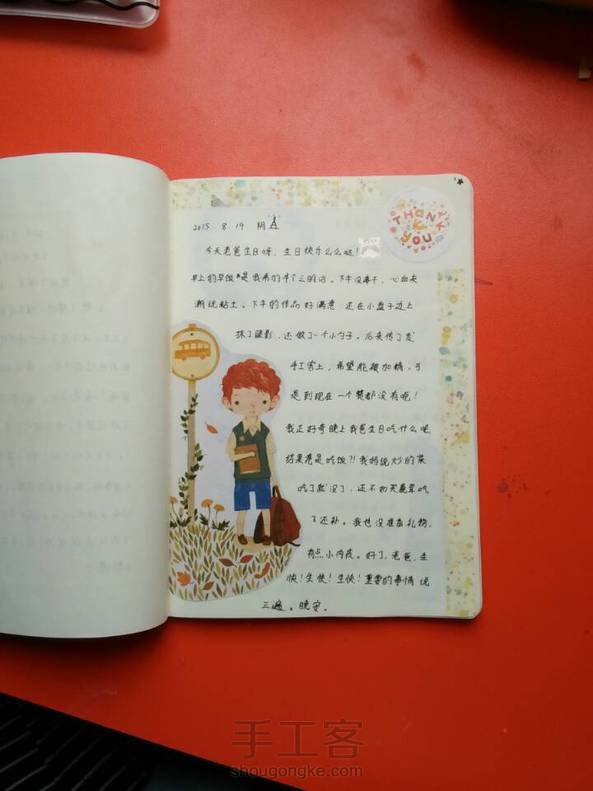 THANK YOU
2015.8.19 阴
今天老爸生日呀,生日快乐么么哒!
早上的早饭是我弟的
下午没事干,心血来
潮玩粘土。下午的作品好满意 还在小盘子边上
抹了腮影,还做了一个小勺子。后来传了发
手工客上,希望能被加精,可
是到现在一个赞都没有呢!
我正好奇晚上我爸生日吃什么呢
结果竟是吃饭?!我妈说炒的菜
吃了就没了,还不如天天早吃
了还补。我也没准备礼物,
有点小内疚。好了,老爸,生
快!生快!生快!重要的事情说
三遍。晚安。
手工客
shougongke.com